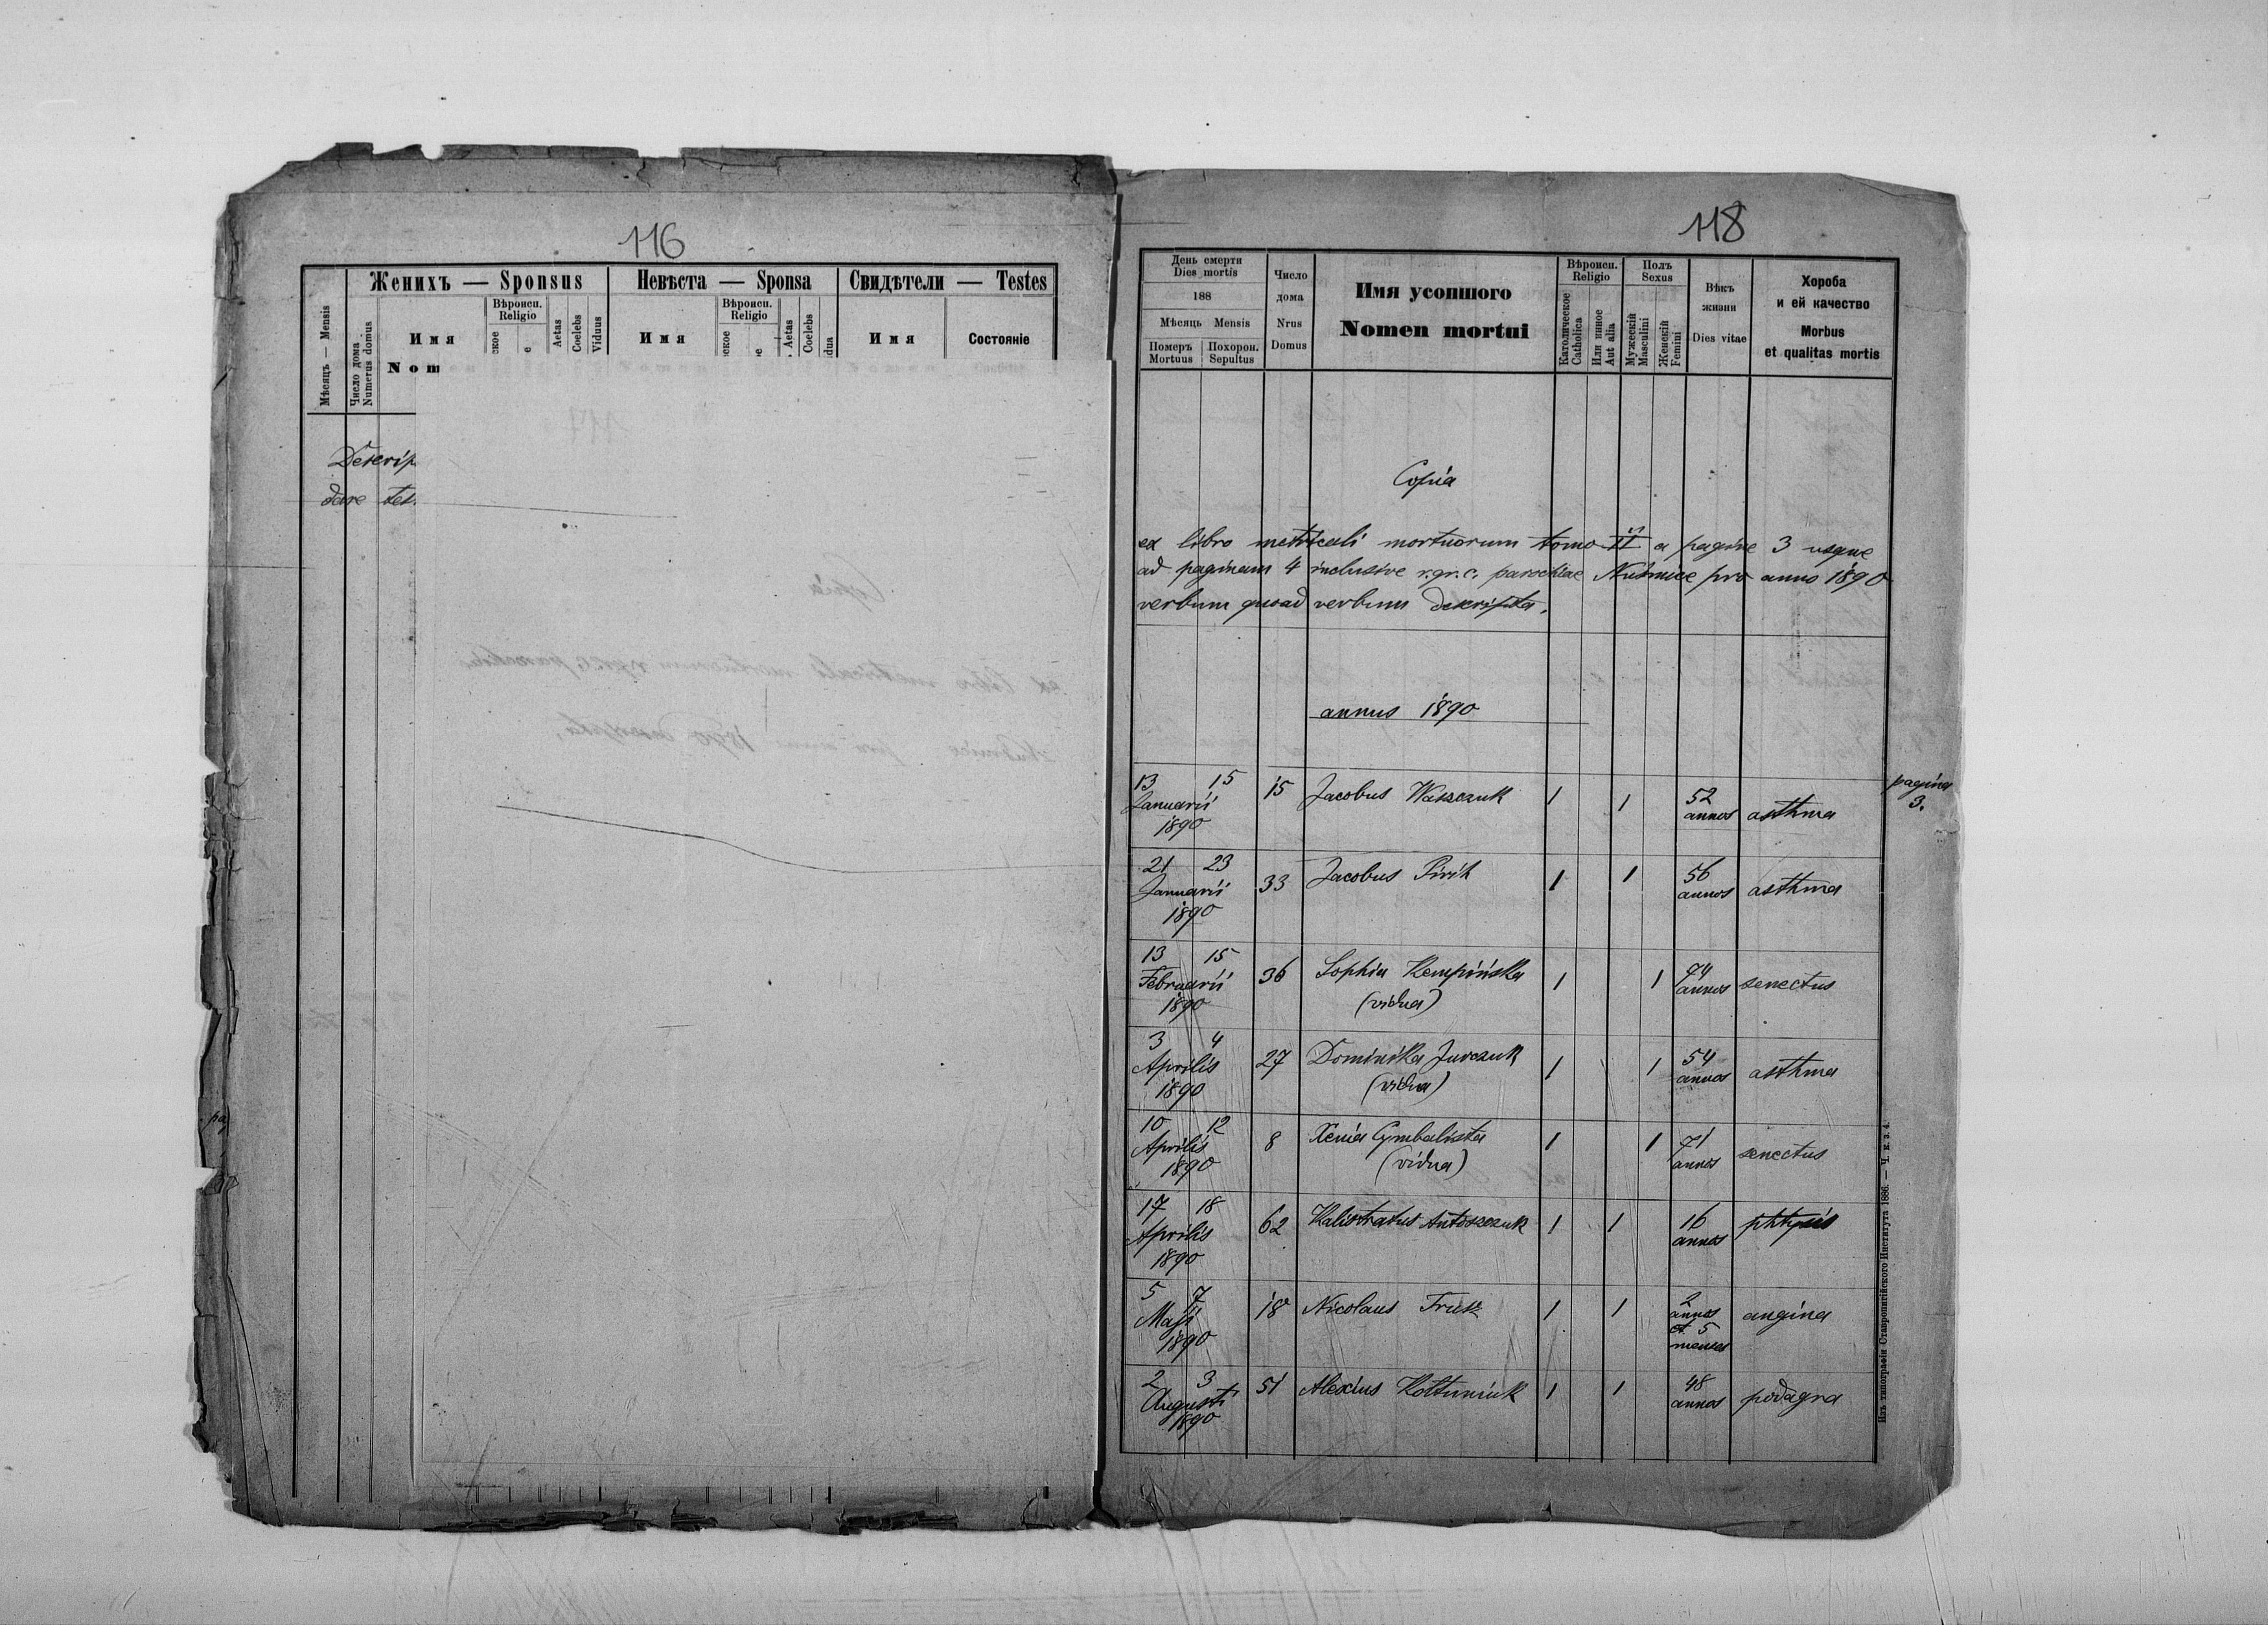 116
Женихъ — Sponsus
Невѣста — Sponsa
Свидѣтели — Testes
Мѣсяць — Mensis
Число дома
Numerus domus
Имя
Nom
Вѣроисп.
Religio
ское
е
Aetas
Coelebs
Viduus
Имя
Вѣроисп.
Religio
еское
Aetas
Coelebs
dua
Имя
Состояніе
Descrip
dare tes.
118
День смерти
Dies mortis
188
Мѣсяць Mensis
Померъ
Mortuus
Похорон.
Sepultus
Число
дома
Nrus
Domus
Имя усопшого
Nomen mortui
Вѣроисп.
Religio
Католическое
Catholica
Или иное
Aut alia
Полъ
Sexus
Мужескій
Masculini
Женскій
Femini
Вѣкъ
жизни
Dies vitae
Хороба
и ей качество
Morbus
et qualitas mortis
Copia
ex libro metricali mortuorum tomo II a pagina 3 usque
ad paginam 4 inclusive r.gr.c. parochiae Nuśmice pro anno 1890
verbum quoad verbum descripta.
annus 1890
13 15 Januarii 1890 15 Jacobus Waszczuk 1 1 52 annos asthma pagina 3.
21 23 Januarii 1890 33 Jacobus Pirih 1 1 56 annos asthma
13 15 Februarii 1890 36 Sophia Kempińska (vidua) 1 1 74 annos senectus
3 4 Aprilis 1890 27 Dominika Jurczuk (vidua) 1 1 54 annos asthma
10 12 Aprilis 1890 8 Xenia Cymbalista (vidua) 1 1 71 annos senectus
17 18 Aprilis 1890 62 Kalistratus Antoszczuk 1 1 16 annos phtysis
5 7 Maji 1890 18 Nicolaus Trusz 1 1 2 annos et 5 menses angina
2 3 Augusti 1890 51 Alexius Koltuniuk 1 1 48 annos podagra
Изъ типографіи Ставропигійского Института 1886. — Ч. к. з. 4.